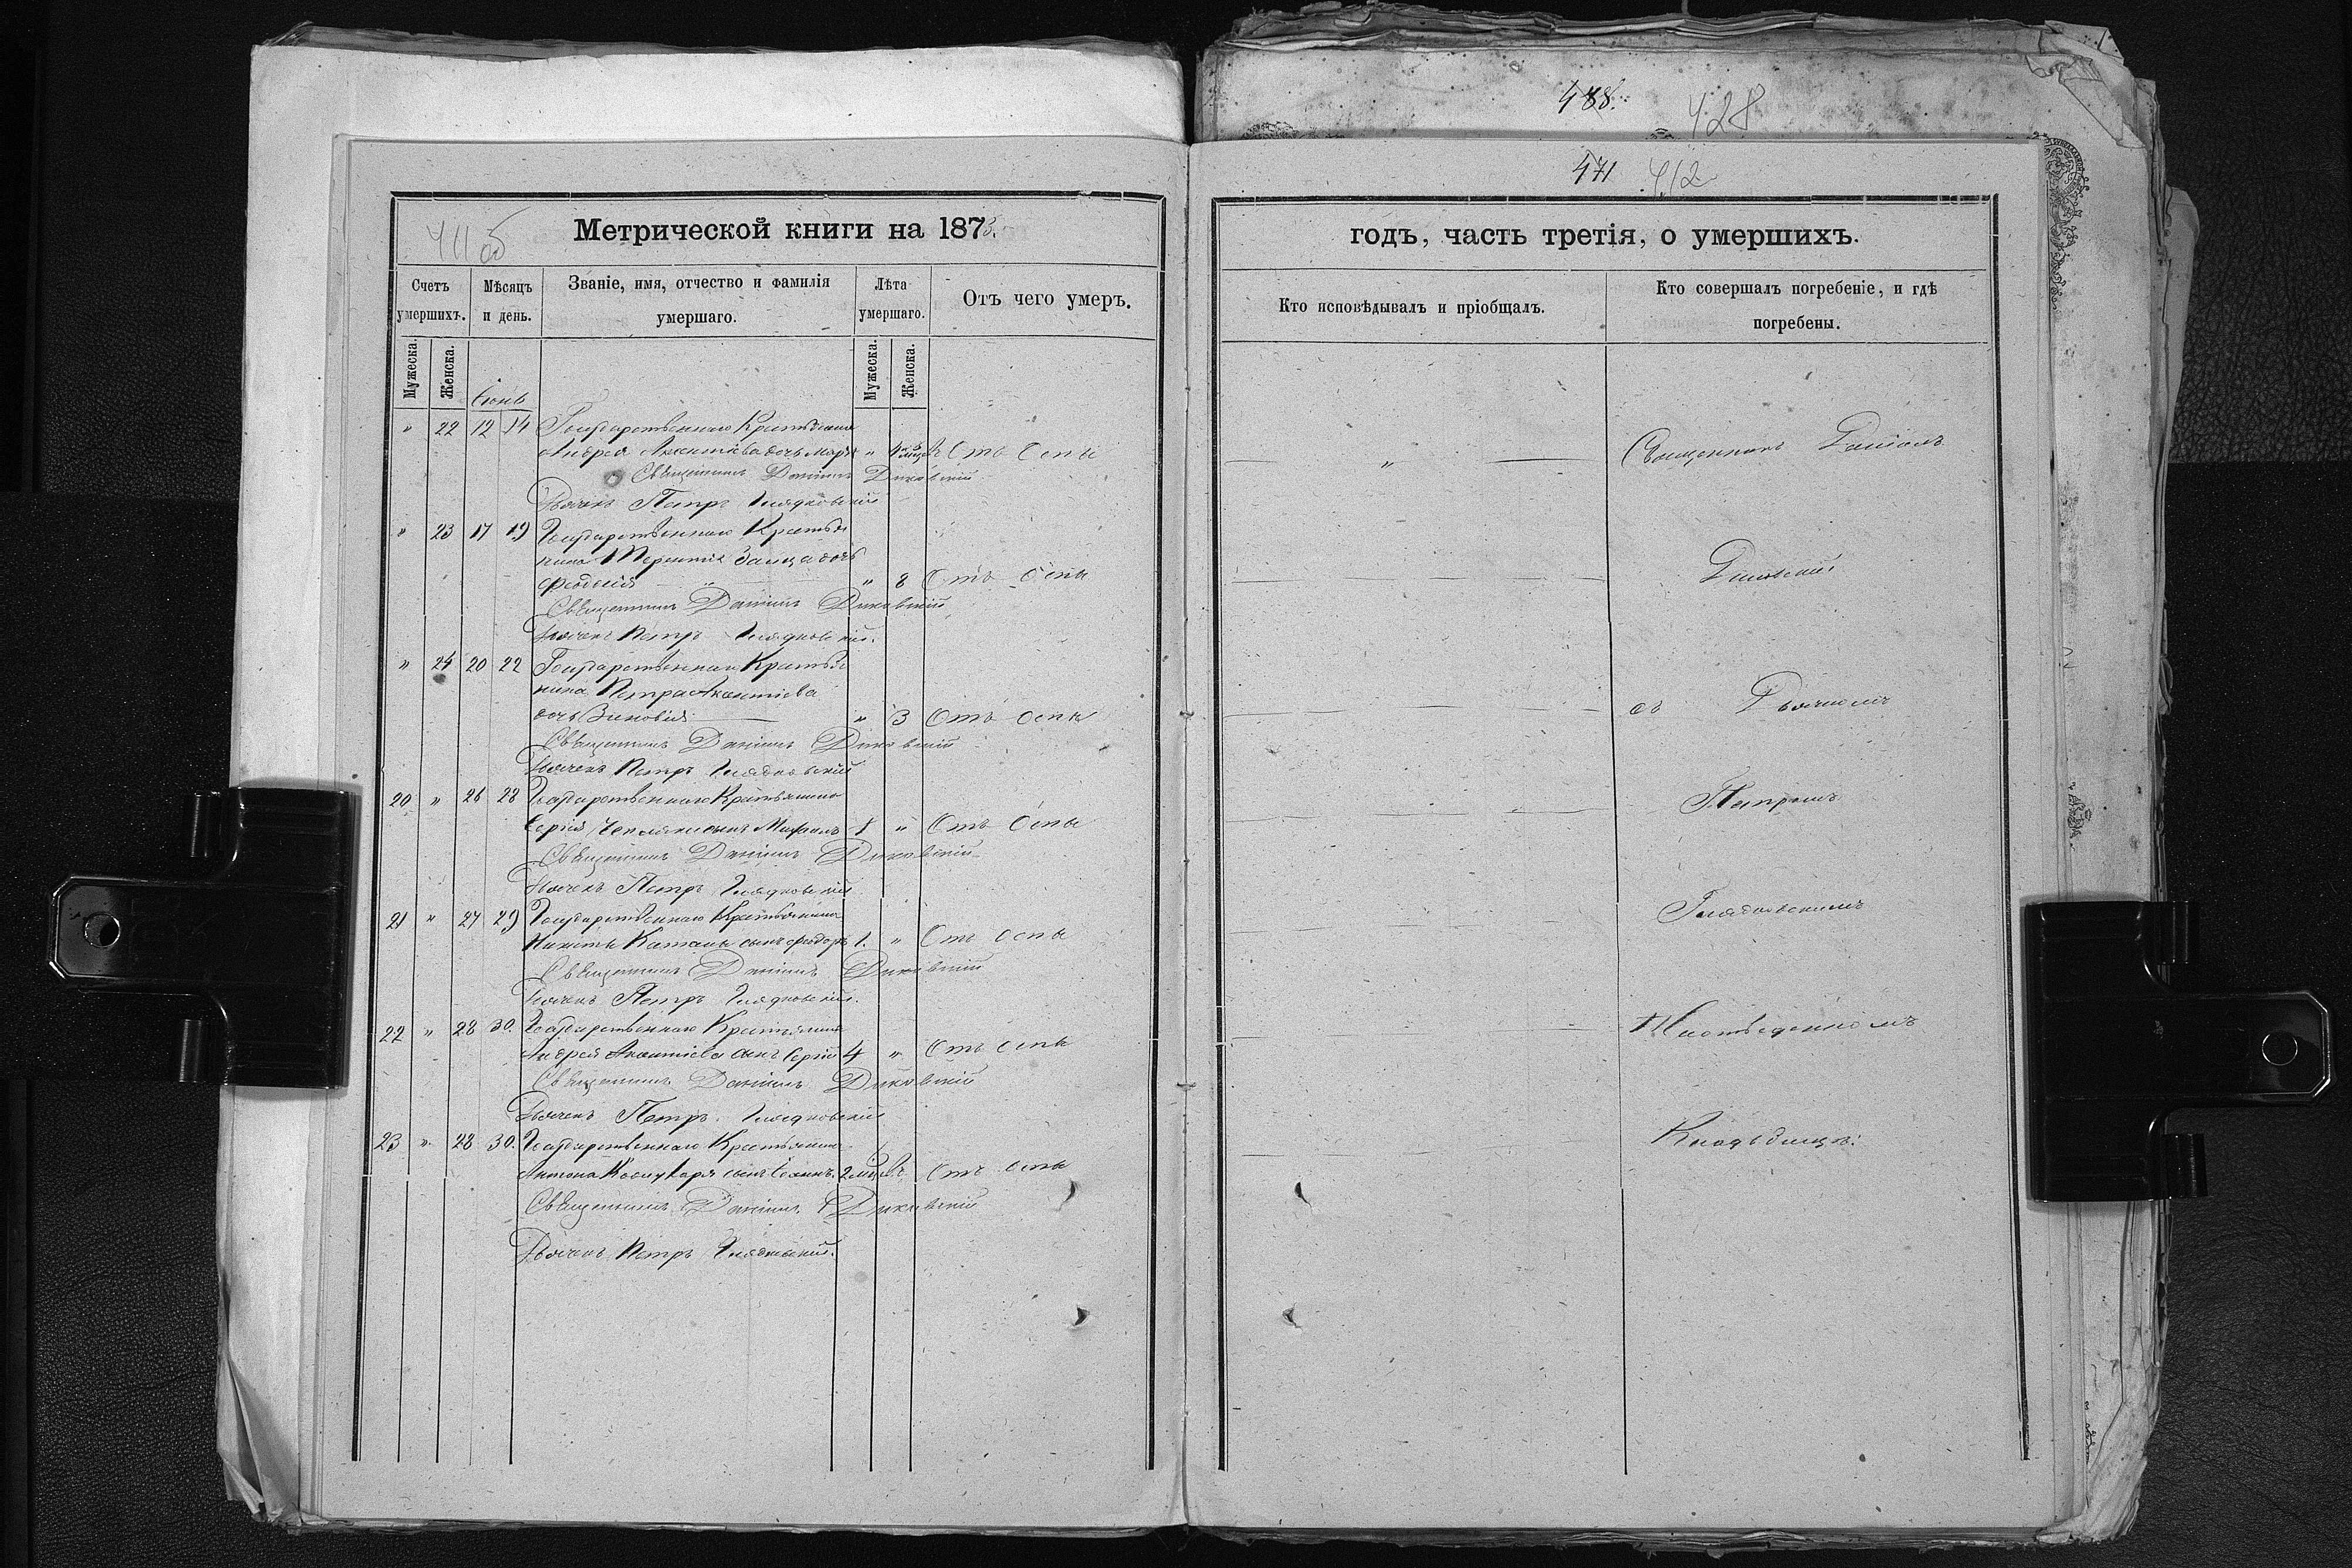 488. 428
471 412
411 об
Метрической книги на 1873.
Счетъ умершихъ.
Мѣсяцъ и день.
Званіе, имя, отчество и фамилія умершаго.
Лѣта умершаго.
Отъ чего умеръ.
Мужеска.
Женска.
Мужеска.
Женска.
Іюнь
" 22 12 14 Государственнаго Крестьянина
Андрея дочь " Отъ Оспы
Священникъ Даніилъ
Дьячекъ Петръ Гладковскій
" 23 17 19 Государственнаго Крестья
нина Терентія Заица дочь
Феодосія " " 8 Отъ Оспы
Священникъ Даніилъ
Дьячекъ Петръ Гладковскій.
" 24 20 22 Государственнаго Крестья
нина Петра Аксентіева
дочь Зиновія " 3 Отъ Оспы
Священникъ Даніилъ
Дьячекъ Петръ Гладковскій
20 " 26 28 Государственнаго Крестьянина
Сергія сынъ 1 " Отъ Оспы
Священникъ Даніилъ
Дьячекъ Петръ Гладковскій
21 " 27 29 Государственнаго Крестьянина
Никиты Катаны сынъ Феодоръ 1. " Отъ Оспы
Священникъ Даніилъ
Дьячекъ Петръ Гладковскій.
22 " 28 30. Государственнаго Крестьянина
Андрея Аксентіева сынъ Сергій 4 " Отъ Оспы
Священникъ Даніилъ
Дьячекъ Петръ Гладковскій
23 " 28 30. Государственнаго Крестьянина
Антона сынъ Іоаннъ. 2 Отъ Оспы
Священникъ Даніилъ
Дьячекъ Петръ Гладковскій.
годъ, часть третія, о умершихъ.
Кто исповѣдывалъ и пріобщалъ.
Кто совершалъ погребеніе, и гдѣ погребены.
" Священникъ Даніилъ
съ Дьячкомъ
Петромъ
Гладковскимъ
Кладбищѣ.